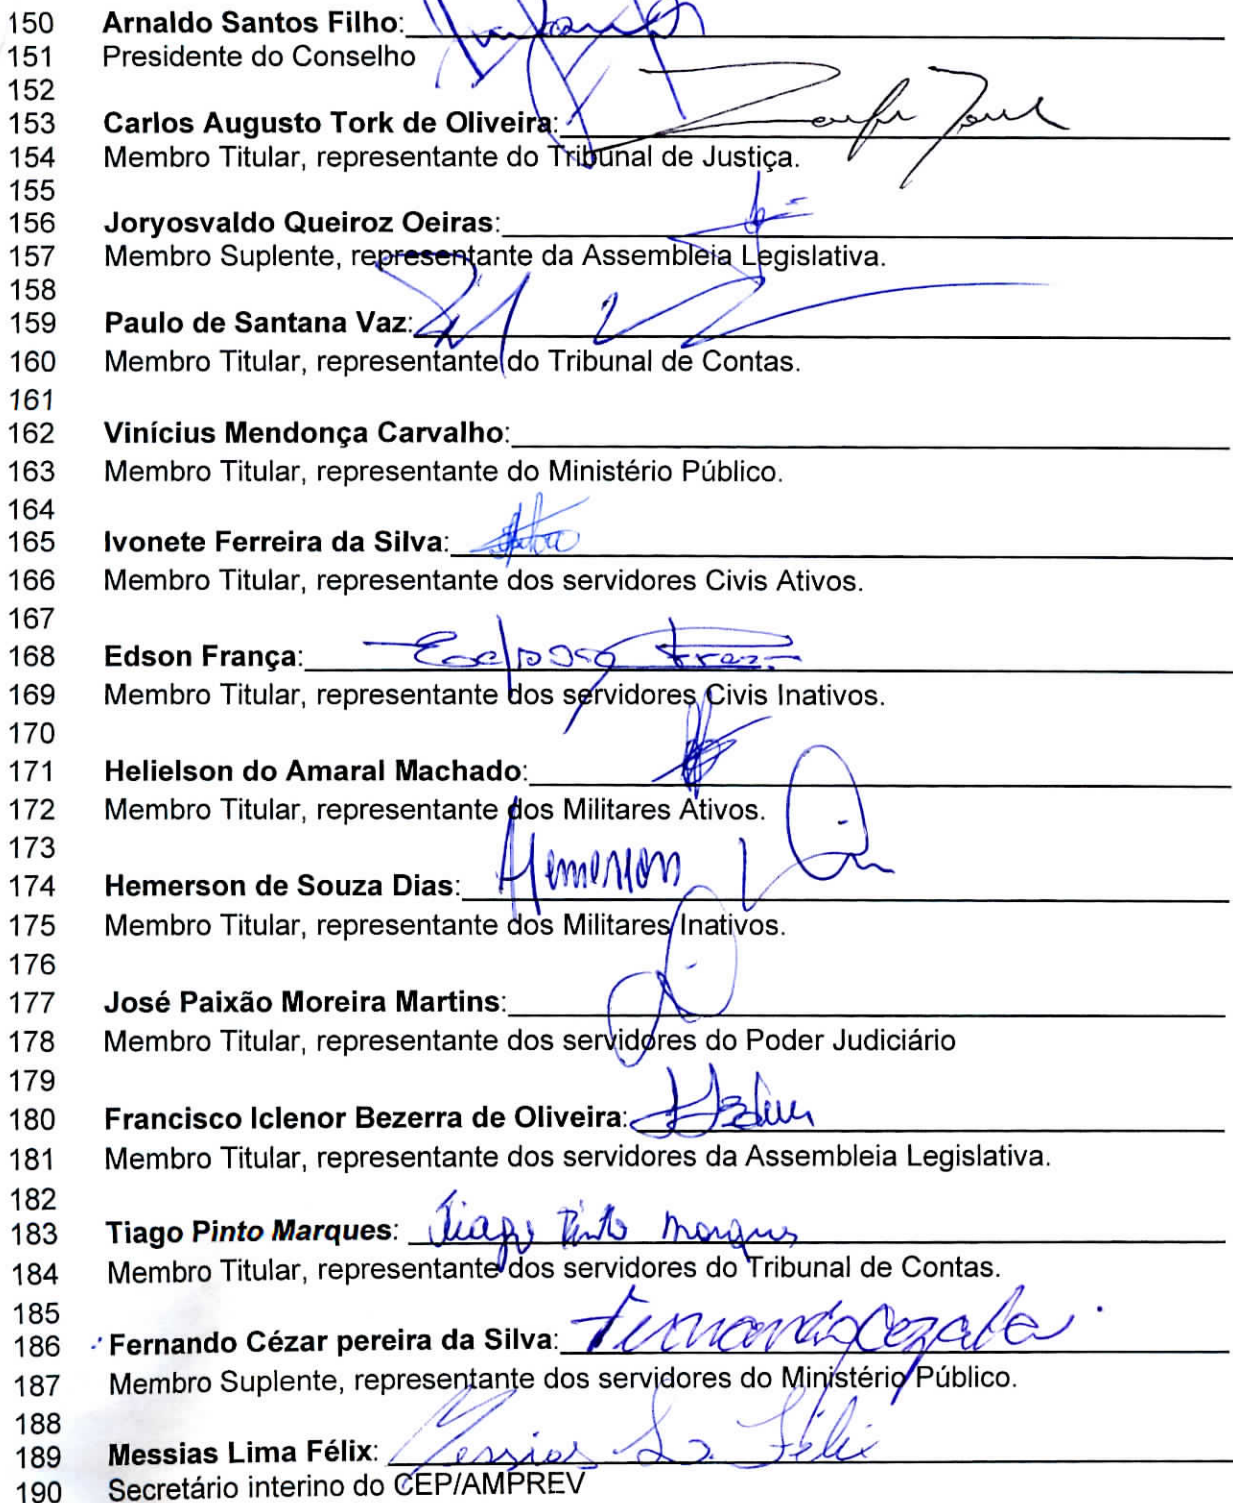 150 Arnaldo Santos Filho:
151 Presidente do Conselho
152
153 Carlos Augusto Tork de Oliveira:
154 Membro Titular, representante do Tribunal de Justiça.
155
156 Joryosvaldo Queiroz Oeiras:
157 Membro Suplente, representante da Assembleia Legislativa.
158
159 Paulo de Santana Vaz:
160 Membro Titular, representante do Tribunal de Contas.
161
162 Vinícius Mendonça Carvalho:
163 Membro Titular, representante do Ministério Público.
164
165 Ivonete Ferreira da Silva:
166 Membro Titular, representante dos servidores Civis Ativos.
167
168 Edson França:
169 Membro Titular, representante dos servidores Civis Inativos.
170
171 Helielson do Amaral Machado:
172 Membro Titular, representante dos Militares Ativos.
173
174 Hemerson de Souza Dias: Hemerson
175 Membro Titular, representante dos Militares Inativos.
176
177 José Paixão Moreira Martins:
178 Membro Titular, representante dos servidores do Poder Judiciário
179
180 Francisco Iclenor Bezerra de Oliveira:
181 Membro Titular, representante dos servidores da Assembleia Legislativa.
182
183 Tiago Pinto Marques: Tiago Pinto Marques
184 Membro Titular, representante dos servidores do Tribunal de Contas.
185
186 Fernando Cézar pereira da Silva:
187 Membro Suplente, representante dos servidores do Ministério Público.
188
189 Messias Lima Félix: Messias Félix
190 Secretário interino do CEP/AMPREV